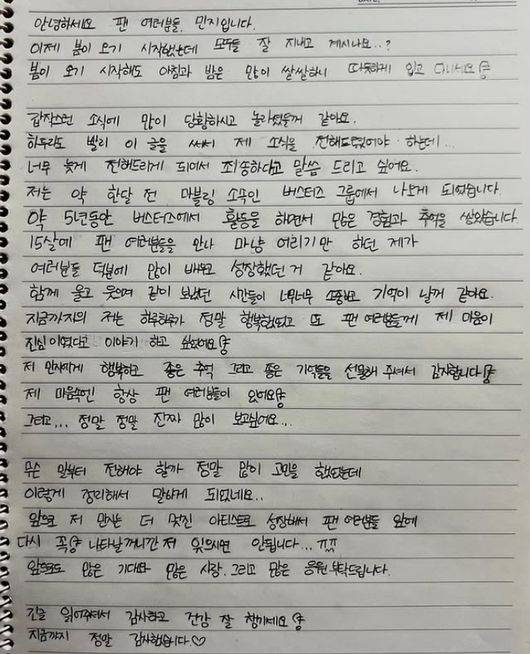 안녕하세요 팬 여러분들. 민지입니다.
이제 봄이 오기 시작했는데 모두들 잘 지내고 계시나요..?
봄이 오기 시작해도 아침과 밤은 많이 쌀쌀하니 따뜻하게 입고 다니세요
갑작스런 소식에 많이 당황하시고 놀라셨을거 같아요.
하루라도 빨리 이 글을 써서 제 소식을 전해드렸어야 하는데...
너무 늦게 전해드리게 되어서 죄송하다고 말씀 드리고 싶어요.
저는 약 한달 전 마블링 소속인 버스터즈 그룹에서 나오게 되었습니다.
약 5년동안 버스터즈에서 활동을 하면서 많은 경험과 추억을 쌓았습니다
15살에 팬 여러분들을 만나 마냥 어리기만 하던 제가
여러분들 덕분에 많이 배우고 성장했던 거 같아요.
함께 울고 웃으며 같이 보냈던 시간들이 너무너무 소중하고 기억이 날거 같아요.
지금까지의 저는 하루하루가 정말 행복했었고 또 팬 여러분들께 제 마음이
진심이였다고 이야기 하고 싶었어요
저 민지에게 행복하고 좋은 추억 그리고 좋은 기억들을 선물해 주셔서 감사합니다
제 마음속엔 항상 팬 여러분들이 있어요
그리고... 정말 정말 진짜 많이 보고싶어요...
무슨 말부터 전해야 할까 정말 많이 고민을 했었는데
이렇게 정리해서 말하게 되었네요..
앞으로 저 민지는 더 멋진 아티스트로 성장해서 팬 여러분들 앞에
다시 꼭 나타날꺼니깐 저 잊으시면 안됩니다... ㅠㅠ
앞으로도 많은 기대와 많은 사랑. 그리고 많은 응원 부탁드립니다.
긴글 읽어주셔서 감사하고 건강 잘 챙기세요
지금까지 정말 감사했습니다.♡